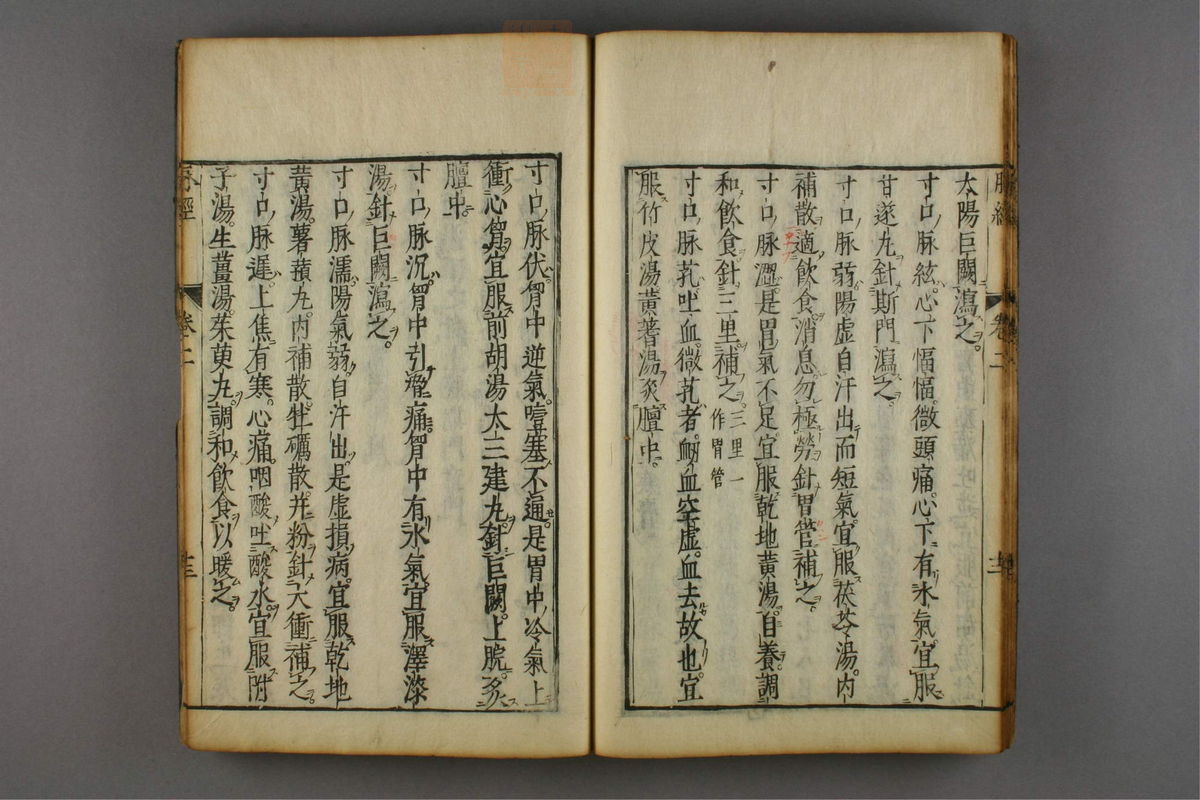 脉經
卷二
太陽巨闕瀉之
寸口脉絃心下愊愊微頭痛心下有水氣宜服
甘遂丸針期門瀉之
寸口脉弱陽虚自汗出而短氣宜服茯苓湯内
補散適飲食消息勿極勞針胃管補之
寸口脉澀是胃氣不足宜服乾地黃湯自養調
和飲食針三里補之三里一作胃管
寸口脉芤吐血微芤者衂血空虚血去故也宜
服竹皮湯黃著湯灸膻中
寸口脉伏胷中逆氣噎塞不通是胃中冷氣上
衝心胷宜服前胡湯太三建丸針巨闕上脘灸
膻中
寸口脉沉胷中引脅痛胷中有水氣宜服澤漆
湯針巨闕瀉之
寸口脉濡陽氣弱自汗出是虚損病宜服乾地
黃湯薯蕷丸内補散牡礪散并粉針太衝補之
寸口脉遲上焦有寒心痛咽酸吐酸水宜服附
子湯生薑湯茱萸丸調和飲食以暖之
脉經
卷二